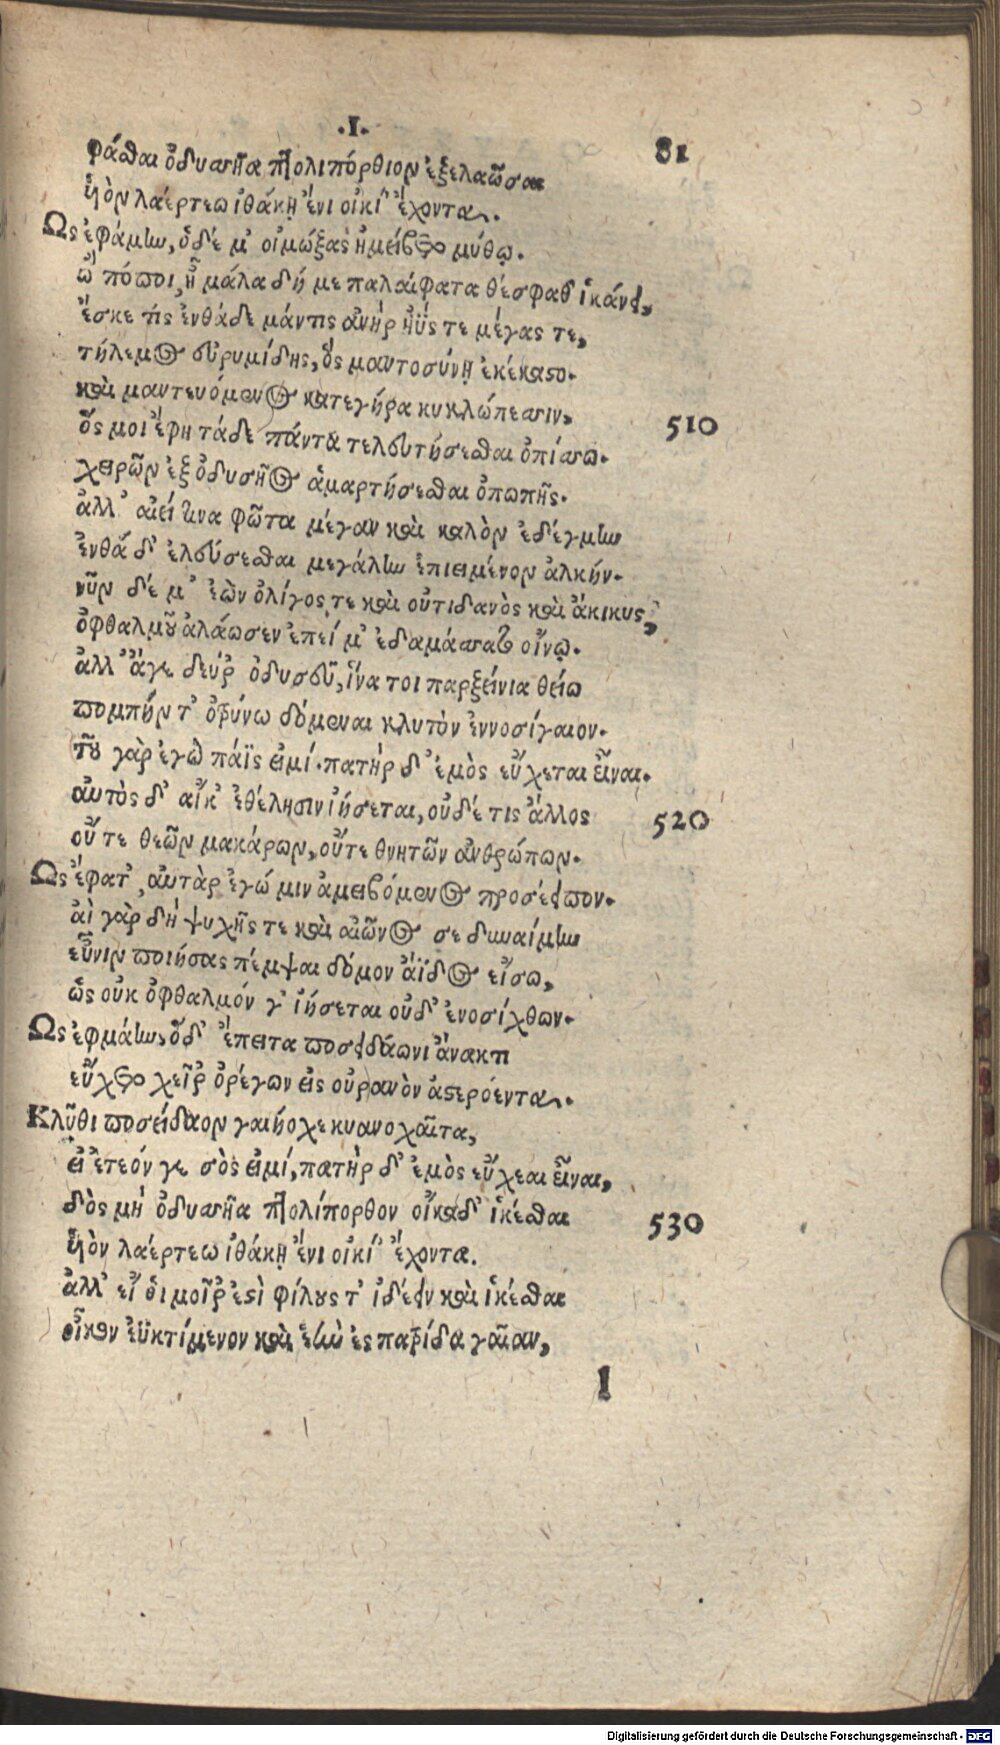 ·I· 81
φάσθαι ὀδυσσῆα πτολιπόρθιον ἐξελαῶσαι
ὑὸν λαέρτεω ἰθάκῃ ἔνι οἰκί' ἔχοντα.
Ὣς ἐφάμην, ὁδέ μ' οἰμώξας ἠμείβετο μύθῳ.
ὢ πόποι, ἦ μάλα δή με παλαίφατα θέσφαθ' ἱκάνει,
ἔσκε τὶς ἐνθάδε μάντις ἀνὴρ ἠΰς τε μέγας τε,
τήλεμος εὐρυμίδης, ὃς μαντοσύνῃ ἐκέκαστο.
καὶ μαντευόμενος κατεγήρα κυκλώπεσσιν,
ὅς μοι ἔφη τάδε πάντα τελευτήσεσθαι ὀπίσσω. 510
χειρῶν ἐξ ὀδυσῆος ἁμαρτήσεσθαι ὀπωπῆς.
ἀλλ' αἰεί τινα φῶτα μέγαν καὶ καλὸν ἐδέγμην
ἐνθάδ' ἐλεύσεσθαι μεγάλην ἐπιειμένον ἀλκήν.
νῦν δέ μ' ἐὼν ὀλίγος τε καὶ οὐτιδανὸς καὶ ἄκικυς,
ὀφθαλμοῦ ἀλάωσεν ἐπεί μ' ἐδαμάσσατο οἴνῳ.
ἀλλ' ἄγε δεῦρ' ὀδυσεῦ, ἵνα τοι παρξείνια θείω
πομπήν τ' ὀτρύνω δόμεναι κλυτὸν ἐννοσίγαιον.
τοῦ γὰρ ἐγὼ πάϊς εἰμί. πατὴρ δ' ἐμὸς εὔχεται εἶναι.
αὐτὸς δ' αἴκ' ἐθέλησιν ἰήσεται, οὐδέ τις ἄλλος
οὔτε θεῶν μακάρων, οὔτε θνητῶν ἀνθρώπων. 520
Ὣς ἔφατ', αὐτὰρ ἐγώ μιν ἀμειβόμενος προσέειπον.
αἲ γὰρ δὴ ψυχῆς τε καὶ αἰῶνος σε δυναίμην
εὖνιν ποιήσας πέμψαι δόμον ἄϊδος εἴσω,
ὡς οὐκ ὀφθαλμόν γ' ἰήσεται οὐδ' ἐνοσίχθων.
Ὣς ἐφμάην, ὅδ' ἔπειτα ποσειδάωνι ἄνακτι
εὔχετο χεῖρ' ὀρέγων εἰς οὐρανὸν ἀστερόεντα.
Κλῦθι ποσείδαον γαιήοχε κυανοχαῖτα,
εἰ ἐτεόν γε σὸς εἰμί, πατὴρ δ' ἐμὸς εὔχεαι εἶναι,
δὸς μὴ ὀδυσσῆα πτολίπορθον οἴκαδ' ἱκέσθαι 530
ὑὸν λαέρτεω ἰθάκῃ ἔνι οἰκί' ἔχοντα.
ἀλλ' εἴ ὁι μοῖρ' ἐστὶ φίλους τ' ἰδέειν καὶ ἱκέσθαι
οἶκον ἐϋκτίμενον καὶ ἑὴν ἐς πατρίδα γαῖαν,
l
Digitalisierung gefördert durch die Deutsche Forschungsgemeinschaft - DFG